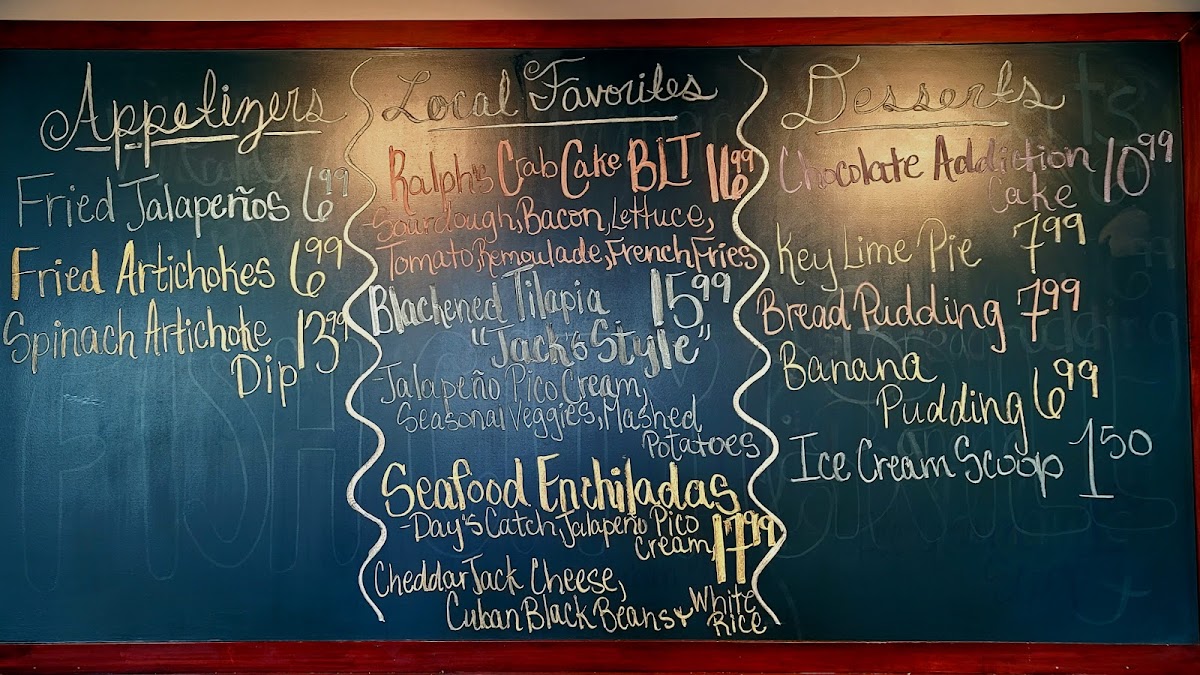 Appetizers
Fried Jalapeños 6.99
Fried Artichokes 6.99
Spinach Artichoke
Dip 13.99
Local Favorites
Ralph's Crab Cake BLT 16.99
-Sourdough, Bacon, Lettuce,
Tomato, Remoulade, French Fries
Blachened Tilapia 15.99
"Jack's Style"
-Jalapeño Pico Cream,
Seasonal Veggies, Mashed
Potatoes
Seafood Enchiladas
-Day's Catch, Jalapeño Pico
Cream, 17.99
Cheddar Jack Cheese,
Cuban Black Beans & White
Rice
Desserts
Chocolate Addiction
Cake 10.99
Key Lime Pie 7.99
Bread Pudding 7.99
Banana
Pudding 6.99
Ice Cream Scoop 1.50